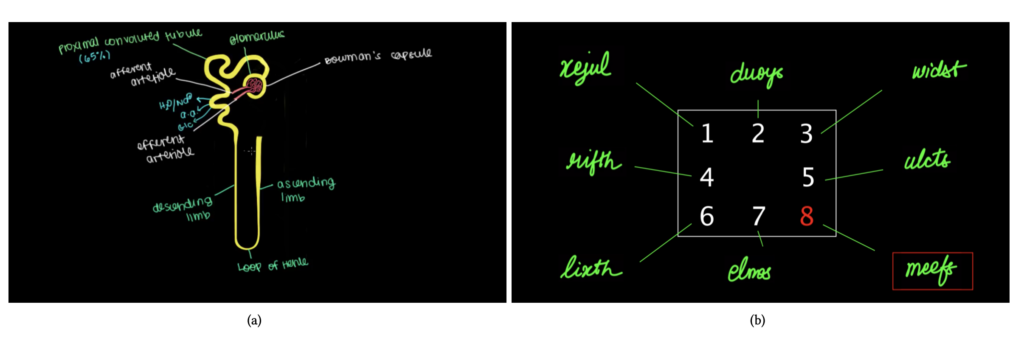 proximal convoluted tubule
(65%)
glomerulus
Bowman's capsule
afferent
arteriole
H2O/Na+
a.a
Glc
efferent
arteriole
descending
limb
ascending
limb
loop of Henle
(a)
xejul
duoys
widst
1 2 3
rifth
4 5
ulcts
6 7 8
lixth
elmos
meefs
(b)